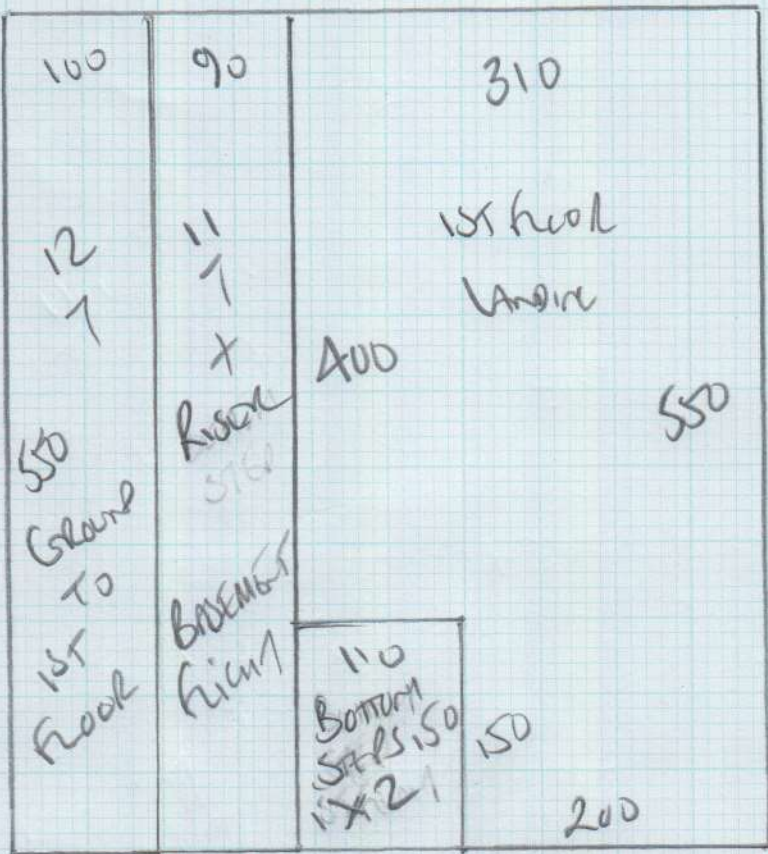 100
12
1
550
GROUND
TO
1ST
FLOOR
90
11
1
X
RISER
STEP
BASEMENT
FLIGHT
310
1ST FLOOR
LANDING
400
550
110
BOTTOM
STEPS 150
X2
150
200